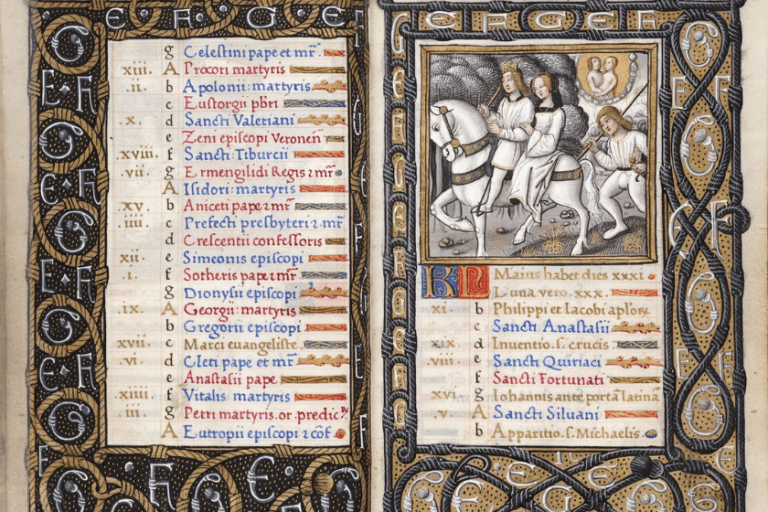 g Celestini pape et mr̄.
xiii. A Procori martyris
.ii. b Apolonii: martyris
c Eustorgii pb̄ri
.x. d Sancti Valeriani
e Zeni episcopi Veronen̄
.xviii. f Sancti: Tiburcii
vii. g Ermengildi Regis 2 mr̄
A Isidori: martyris
xv. b Aniceti pape 2 mr̄
.iiii. c Prefecti presbyteri 2 mr̄
d Crescentii confessoris
xii. e Simeonis episcopi
.i. f Sotheris pape 2 mr̄
g Dionysii episcopi
.ix. A Georgii: martyris
b Gregorii episcopi
xvii. c Marci evangeliste
.vi. d Cleti pape et mr̄
e Anastasii pape
xiiii. f Vitalis martyris
iii. g Petri martyris. or. predic
A Eutropii episcopi 2 cōf
KL Maius habet dies xxxi
Luna vero .xxx.
xi. b Philippi et Iacobi aplo𝔯
c Sancti Anastasii
xix. d Inuentio .s. crucis
viii. e Sancti Quiriaci
f Sancti Fortunati
xvi. g Iohannis ante portā latinā
.v. A Sancti Siluani
b Apparitio .s. Michaelis